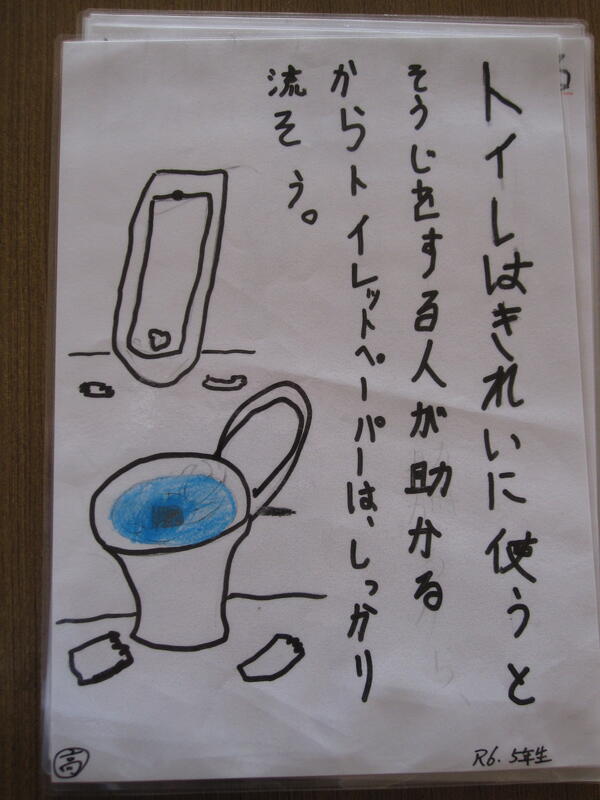 トイレはきれいに使うと
そうじをする人が助かる
からトイレットペーパーは、しっかり
流そう。
高
R6. 5年生